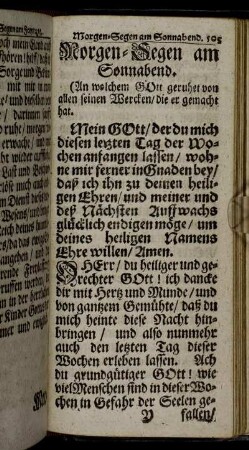 Morgen-Segen am Sonnabend. 505
Morgen-Segen am
Sonnabend.
(An welchem GOtt geruhet von
allen seinen Wercken/ die er gemacht
hat.
Mein GOtt/ der du mich
diesen letzten Tag der Wo-
chen anfangen lassen/ woh-
ne mir ferner in Gnaden bey/
daß ich ihn zu deinen heili-
gen Ehren/ und meiner und
deß Nächsten Auffwachs
glücklich endigen möge/ um
deines heiligen Namens
Ehre willen/ Amen.
O HErr/ du heiliger und ge-
rechter GOtt! ich dancke
dir mit Hertz und Munde/ und
von gantzem Gemühte/ daß du
mich heinte diese Nacht hin-
bringen/ und also nunmehr
auch den letzten Tag dieser
Wochen erleben lassen. Ach
du grundgütiger GOtt! wie
viel Menschen sind in dieser Wo-
chen in Gefahr der Seelen ge-
Y fallen/